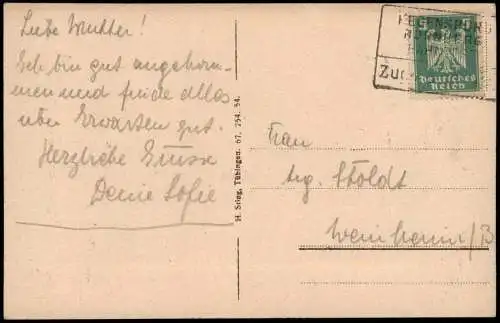 Liebe Mutter!
Ich bin gut angekom-
men und finde alles
über Erwarten gut.
Herzliche Grüsse
Deine Sofie
H. Sting, Tübingen. 67. 254. 54.
Zug
Deutsches
Reich
Frau
Stoldt
Weinheim/B